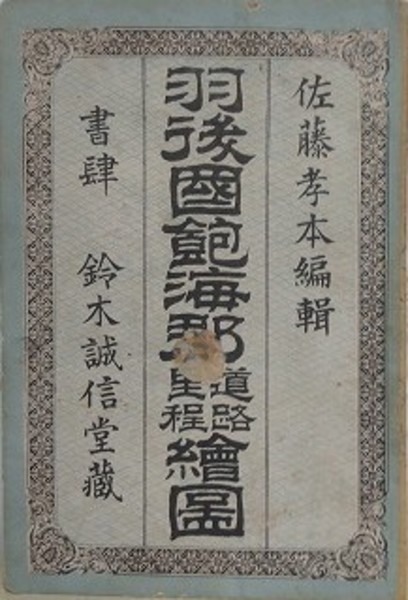 佐藤孝本編輯
羽後國飽海郡道路里程繪圖
書肆　鈴木誠信堂藏